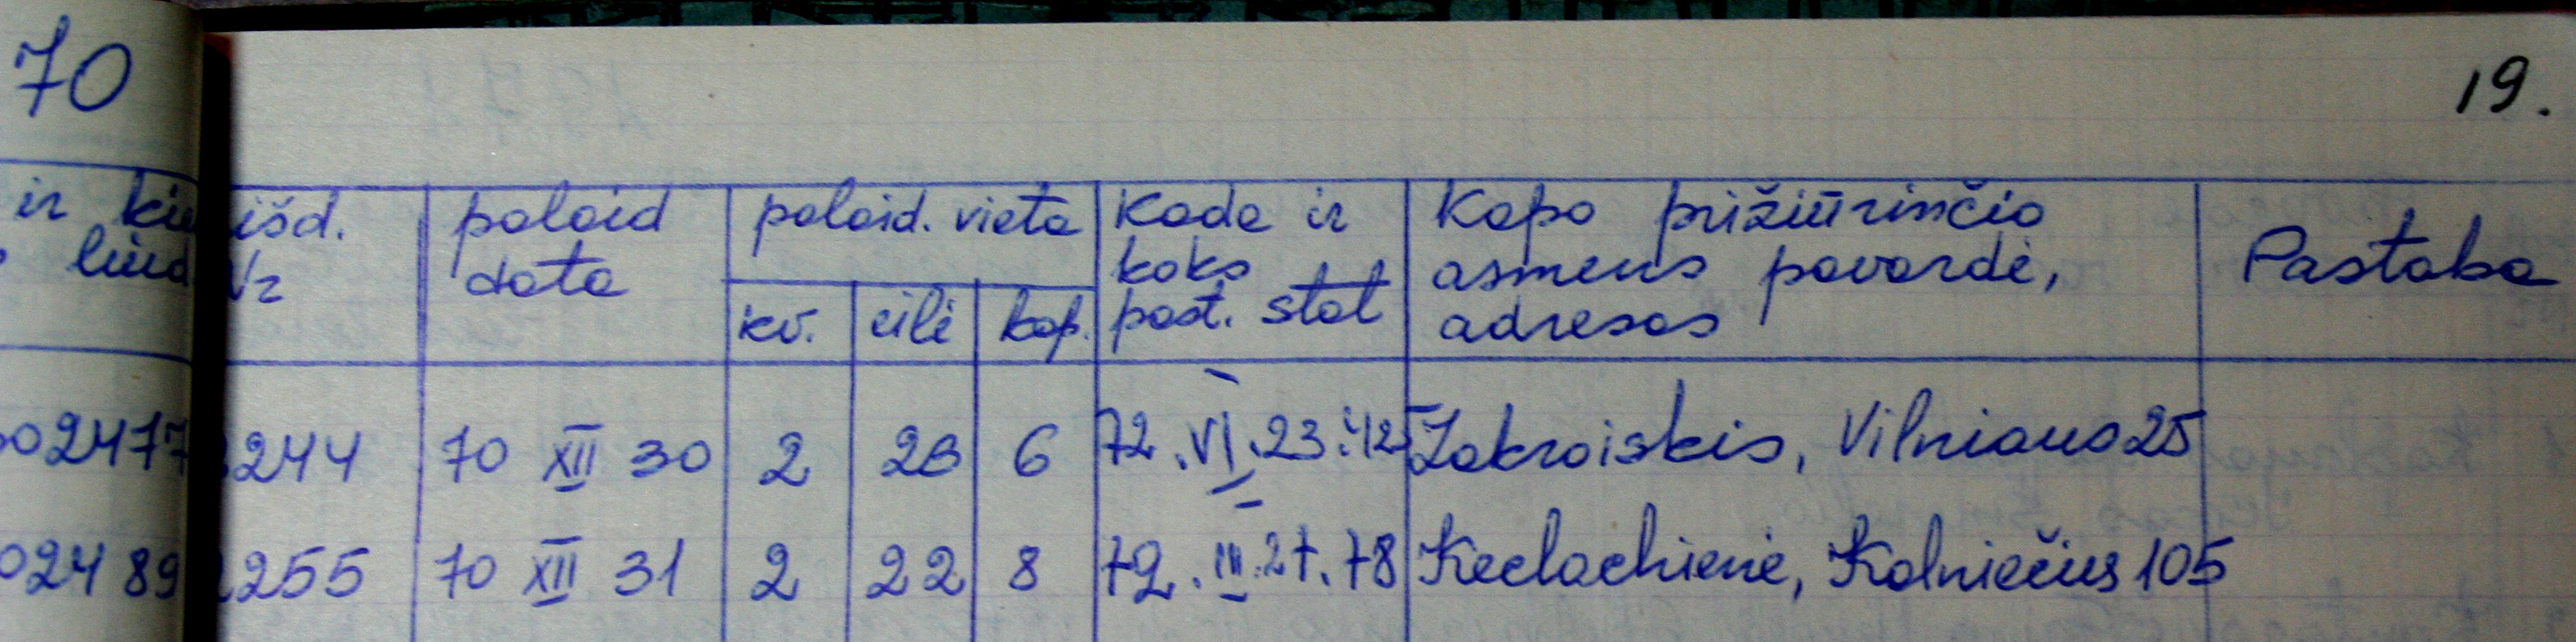 70
19.
ir kie
liud
išd.
Nr
palaid
data
palaid. vieta
kv. eilė kap.
Kada ir
koks
past. stat
Kapo prižiūrinčio
asmens pavardė,
adresas
Pastaba
02477 244 70 XII 30 2 23 6 72.VI.23.42 Zakroiskis, Vilniaus 25
02489 255 70 XII 31 2 22 8 72.III.27.78 Keclachienė, Kalniečius 105